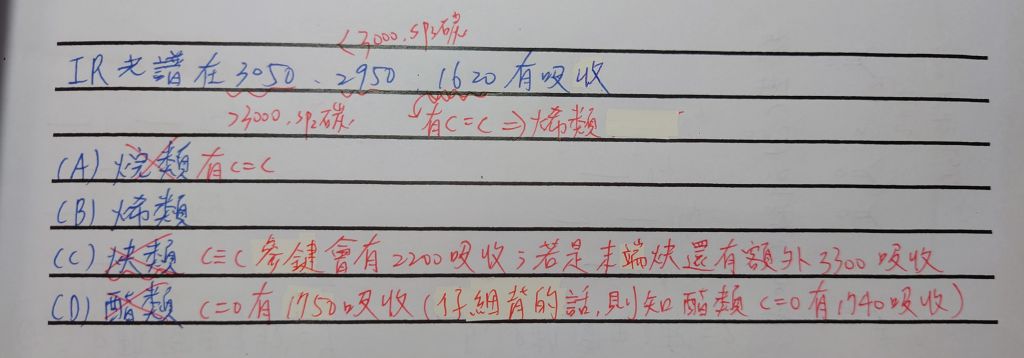 <3000.sp3碳
IR光譜在3050、2950、1620有吸收
>3000.sp2碳 有C=C⇒烯類
(A)烷類 有C=C
(B)烯類
(C)炔類 C≡C參鍵會有2200吸收;若是末端炔還有額外3300吸收
(D)酯類 C=O有1750吸收(仔細背的話,則知酯類C=O有1740吸收)